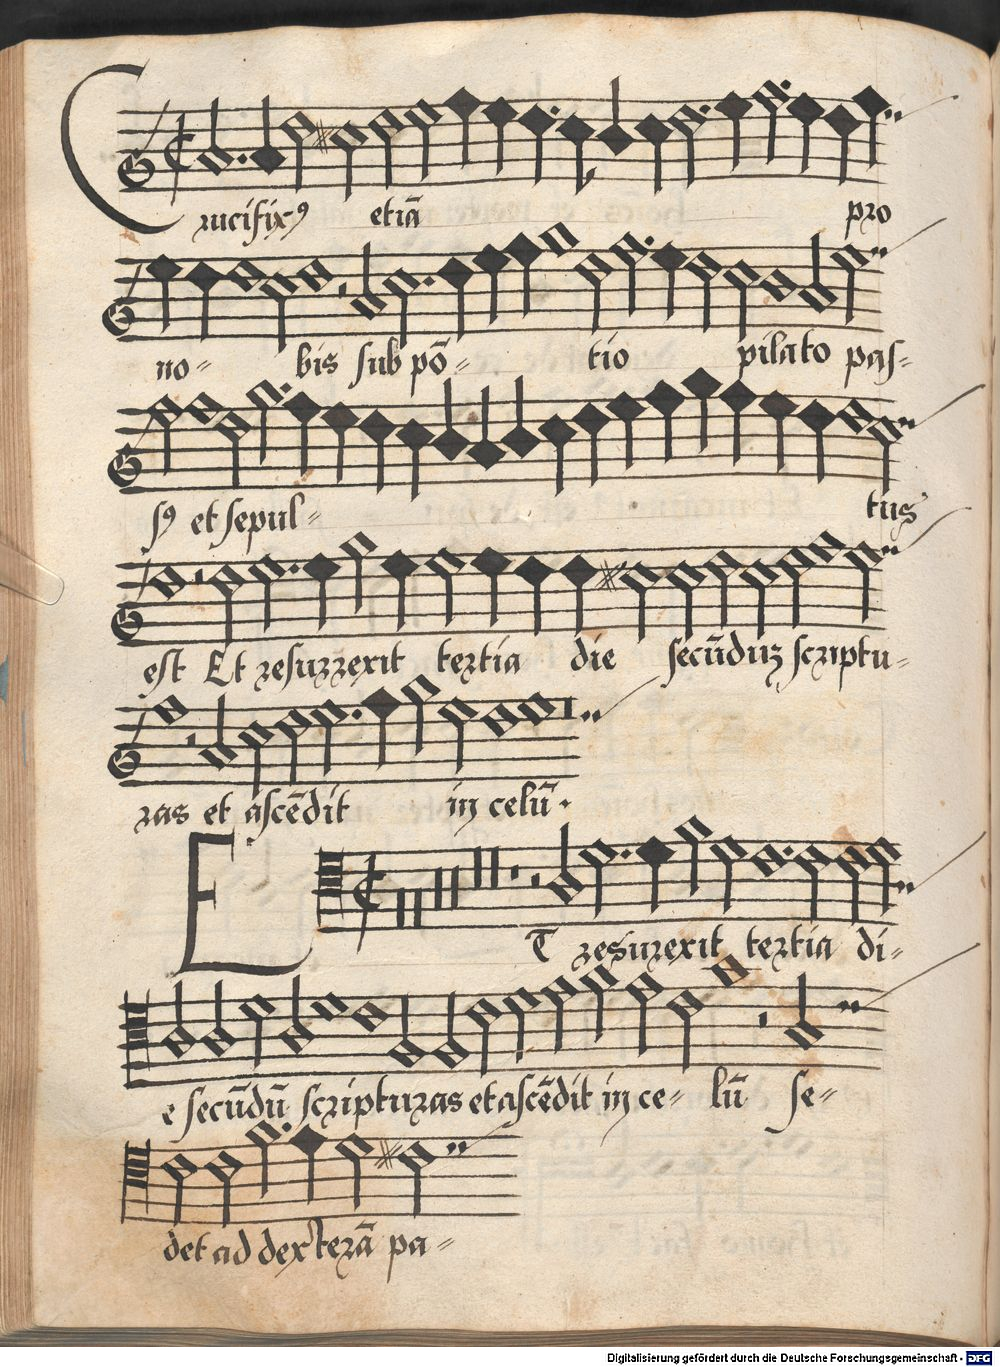 Crucifixꝰ etiā pro
no- bis sub pō- tio pilato pas-
sꝰ et sepul- tus
est Et resurrexit tertia die secūduꝫ scriptu-
ras et ascēdit in celū.
ET resurexit tertia di-
e secūdū scripturas et ascēdit in ce- lū se-
det ad dexterā pa-
Digitalisierung gefördert durch die Deutsche Forschungsgemeinschaft - DFG